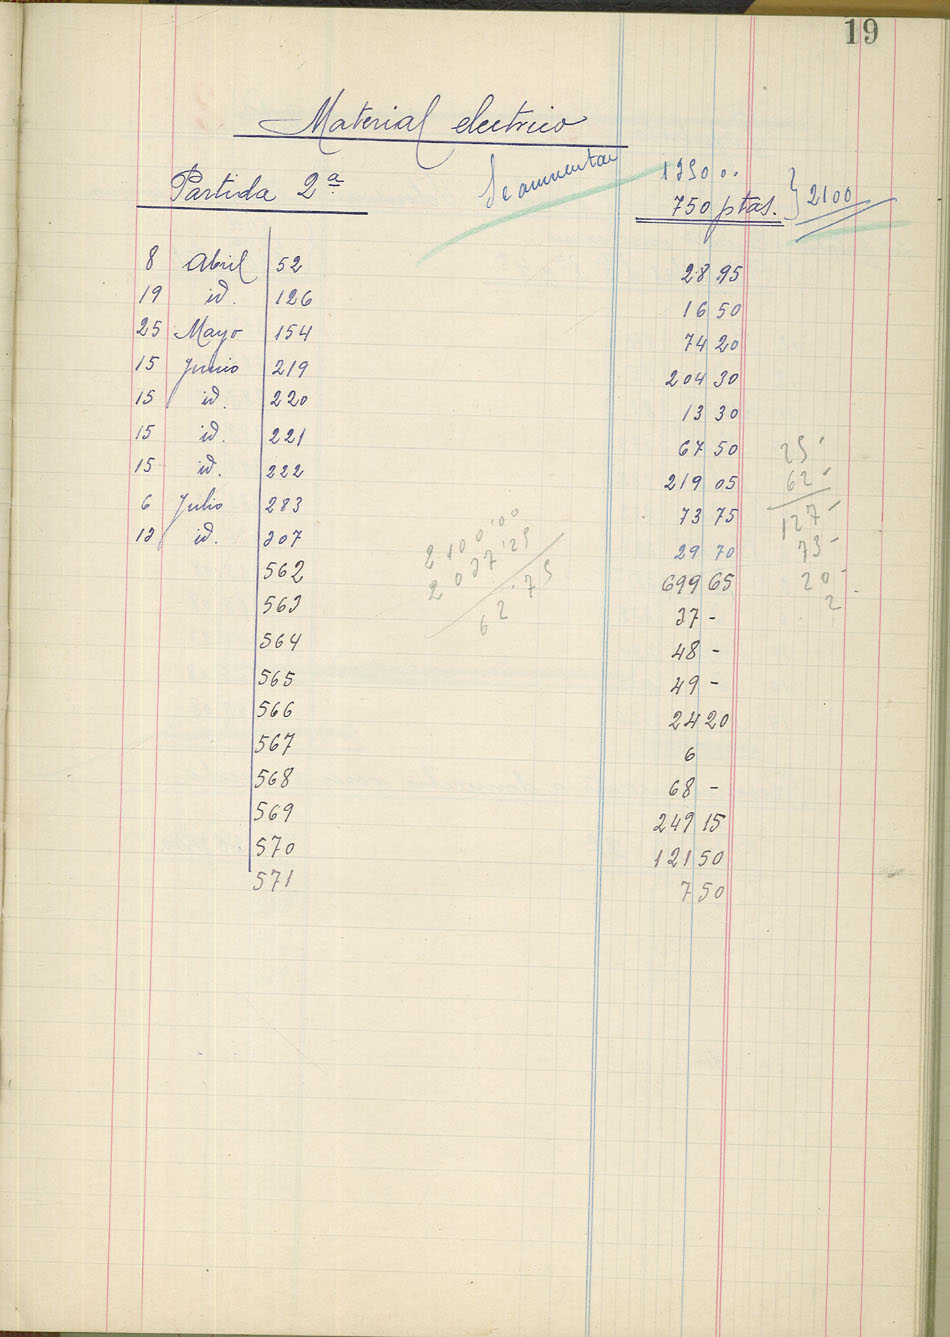 19
Material electrico
Se aumentan 1350 00
Partida 2ª 750 ptas. } 2100
8 Abril 52 28 95
19 id. 126 16 50
25 Mayo 154 74 20
15 Junio 219 204 30
15 id. 220 13 30
15 id. 221 67 50
15 id. 222 219 05
6 Julio 283 73 75
12 id. 307 29 70
562 699 65
563 37 -
564 48 -
565 49 -
566 24 20
567 6
568 68 -
569 249 15
570 121 50
571 7 50
2100'00
2037'25
62.75
25'
62'
127-
73-
20-
2